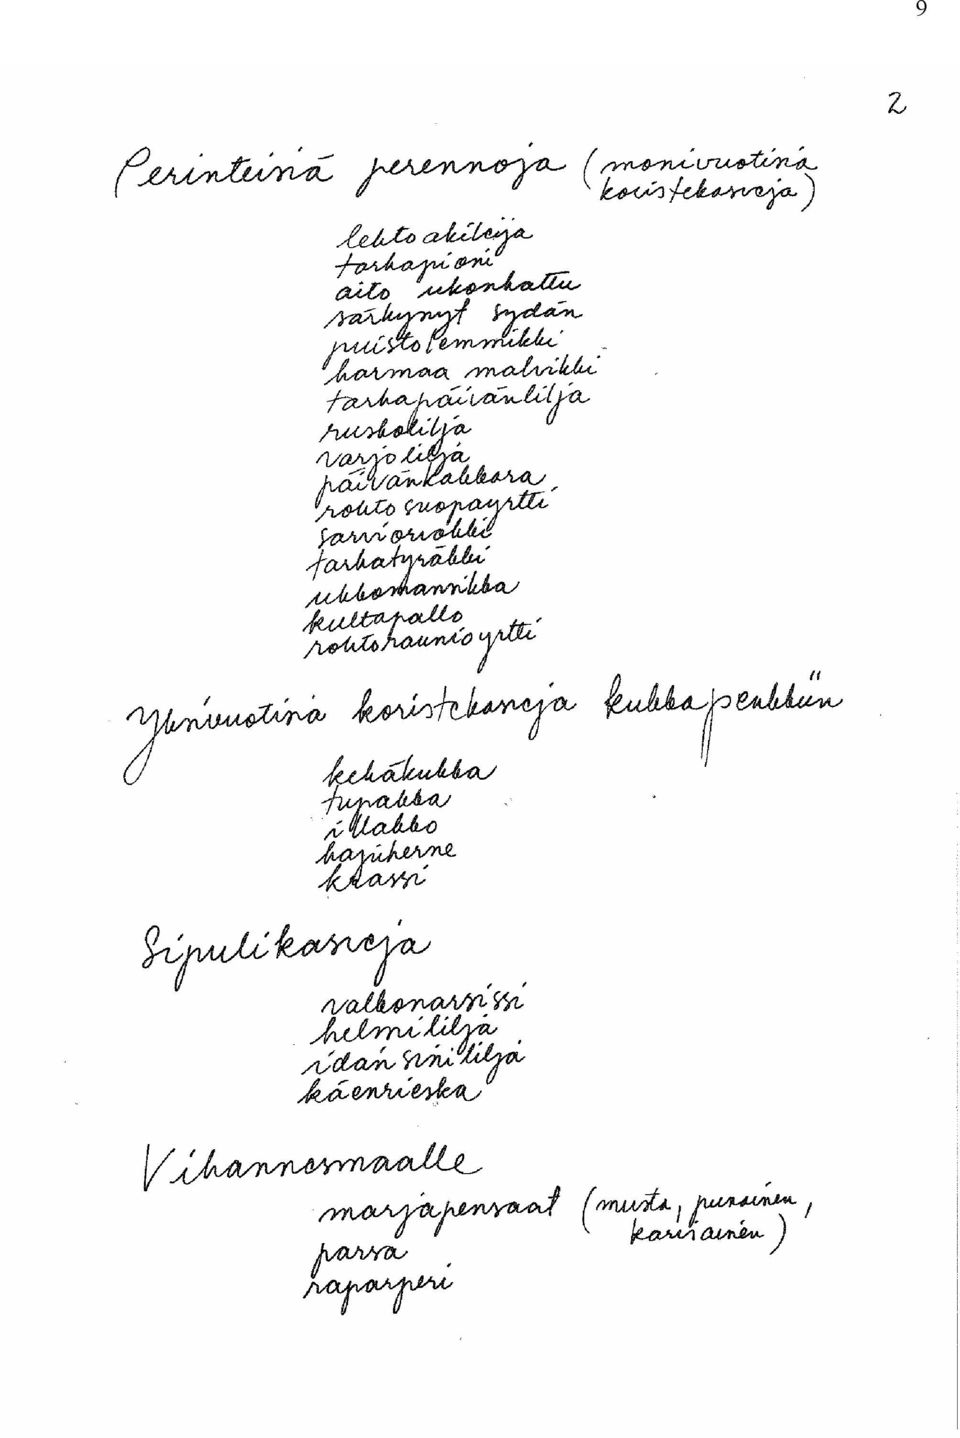 9
2
Perinteisiä perennoja (monivuotisia
koristekasveja)
lehtoakileija
tarhapioni
aito ukonhattu
särkynyt sydän
puistolemmikki
harmaa malvikki
tarhapäivänlilja
ruskolilja
varjolilja
päivänkakkara
rohtosuopayrtti
sarviorvokki
tarhatyräkki
ukkomansikka
kultapallo
rohtoraunioyrtti
Yksivuotisia koristekasveja kukkapenkkiin
kehäkukka
tupakka
illakko
hajuherne
krassi
Sipulikasveja
valkonarsissi
helmililja
idänsinililja
käenrieska
Vihannesmaalle
marjapensaat (musta, punainen,
karviainen)
parsa
raparperi